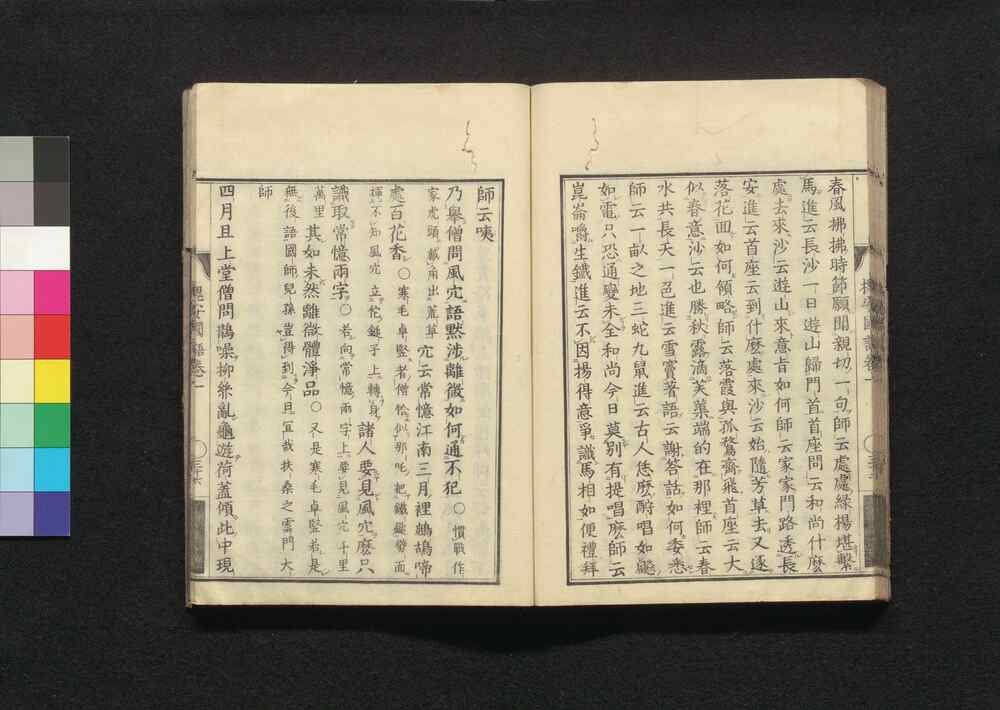 春風拂拂時節願聞親切一句師云處處綠楊堪繫
馬進云長沙一日遊山歸門首首座問云和尚什麼
處去來沙云遊山來意旨如何師云家家門路透長
安進云首座云到什麼處來沙云始隨芳草去又逐
落花回如何領略師云落霞與孤鶩齊飛首座云大
似春意沙云也勝秋露滴芙蕖端的在那裡師云春
水共長天一色進云雪竇著語云謝答話如何委悉
師云一畝之地三蛇九鼠進云古人恁麼酬唱如颷
如電只恐通變未全和尚今日莫別有提唱麼師云
崑崙嚼生鐵進云不因揚得意爭識馬相如便禮拜
師云咦
乃舉僧問風穴語默涉離微如何通不犯○慣戰作
家虎頭戴角出荒草穴云常憶江南三月裡鷓鴣啼
處百花香○寒毛卓豎者僧恰似那吒把鐵鎚劈面
揮不知風穴立佗鎚子上轉身諸人要見風穴麼只
識取常憶兩字○若向常憶兩字上要見風穴千里
萬里其如未然離微體淨品○又是寒毛卓豎若是
無後語國師兒孫豈得到今旦宜哉扶桑之雲門大
師
四月旦上堂僧問鵲噪柳絲亂龜遊荷蓋傾此中現
槐安國語卷一
三十六